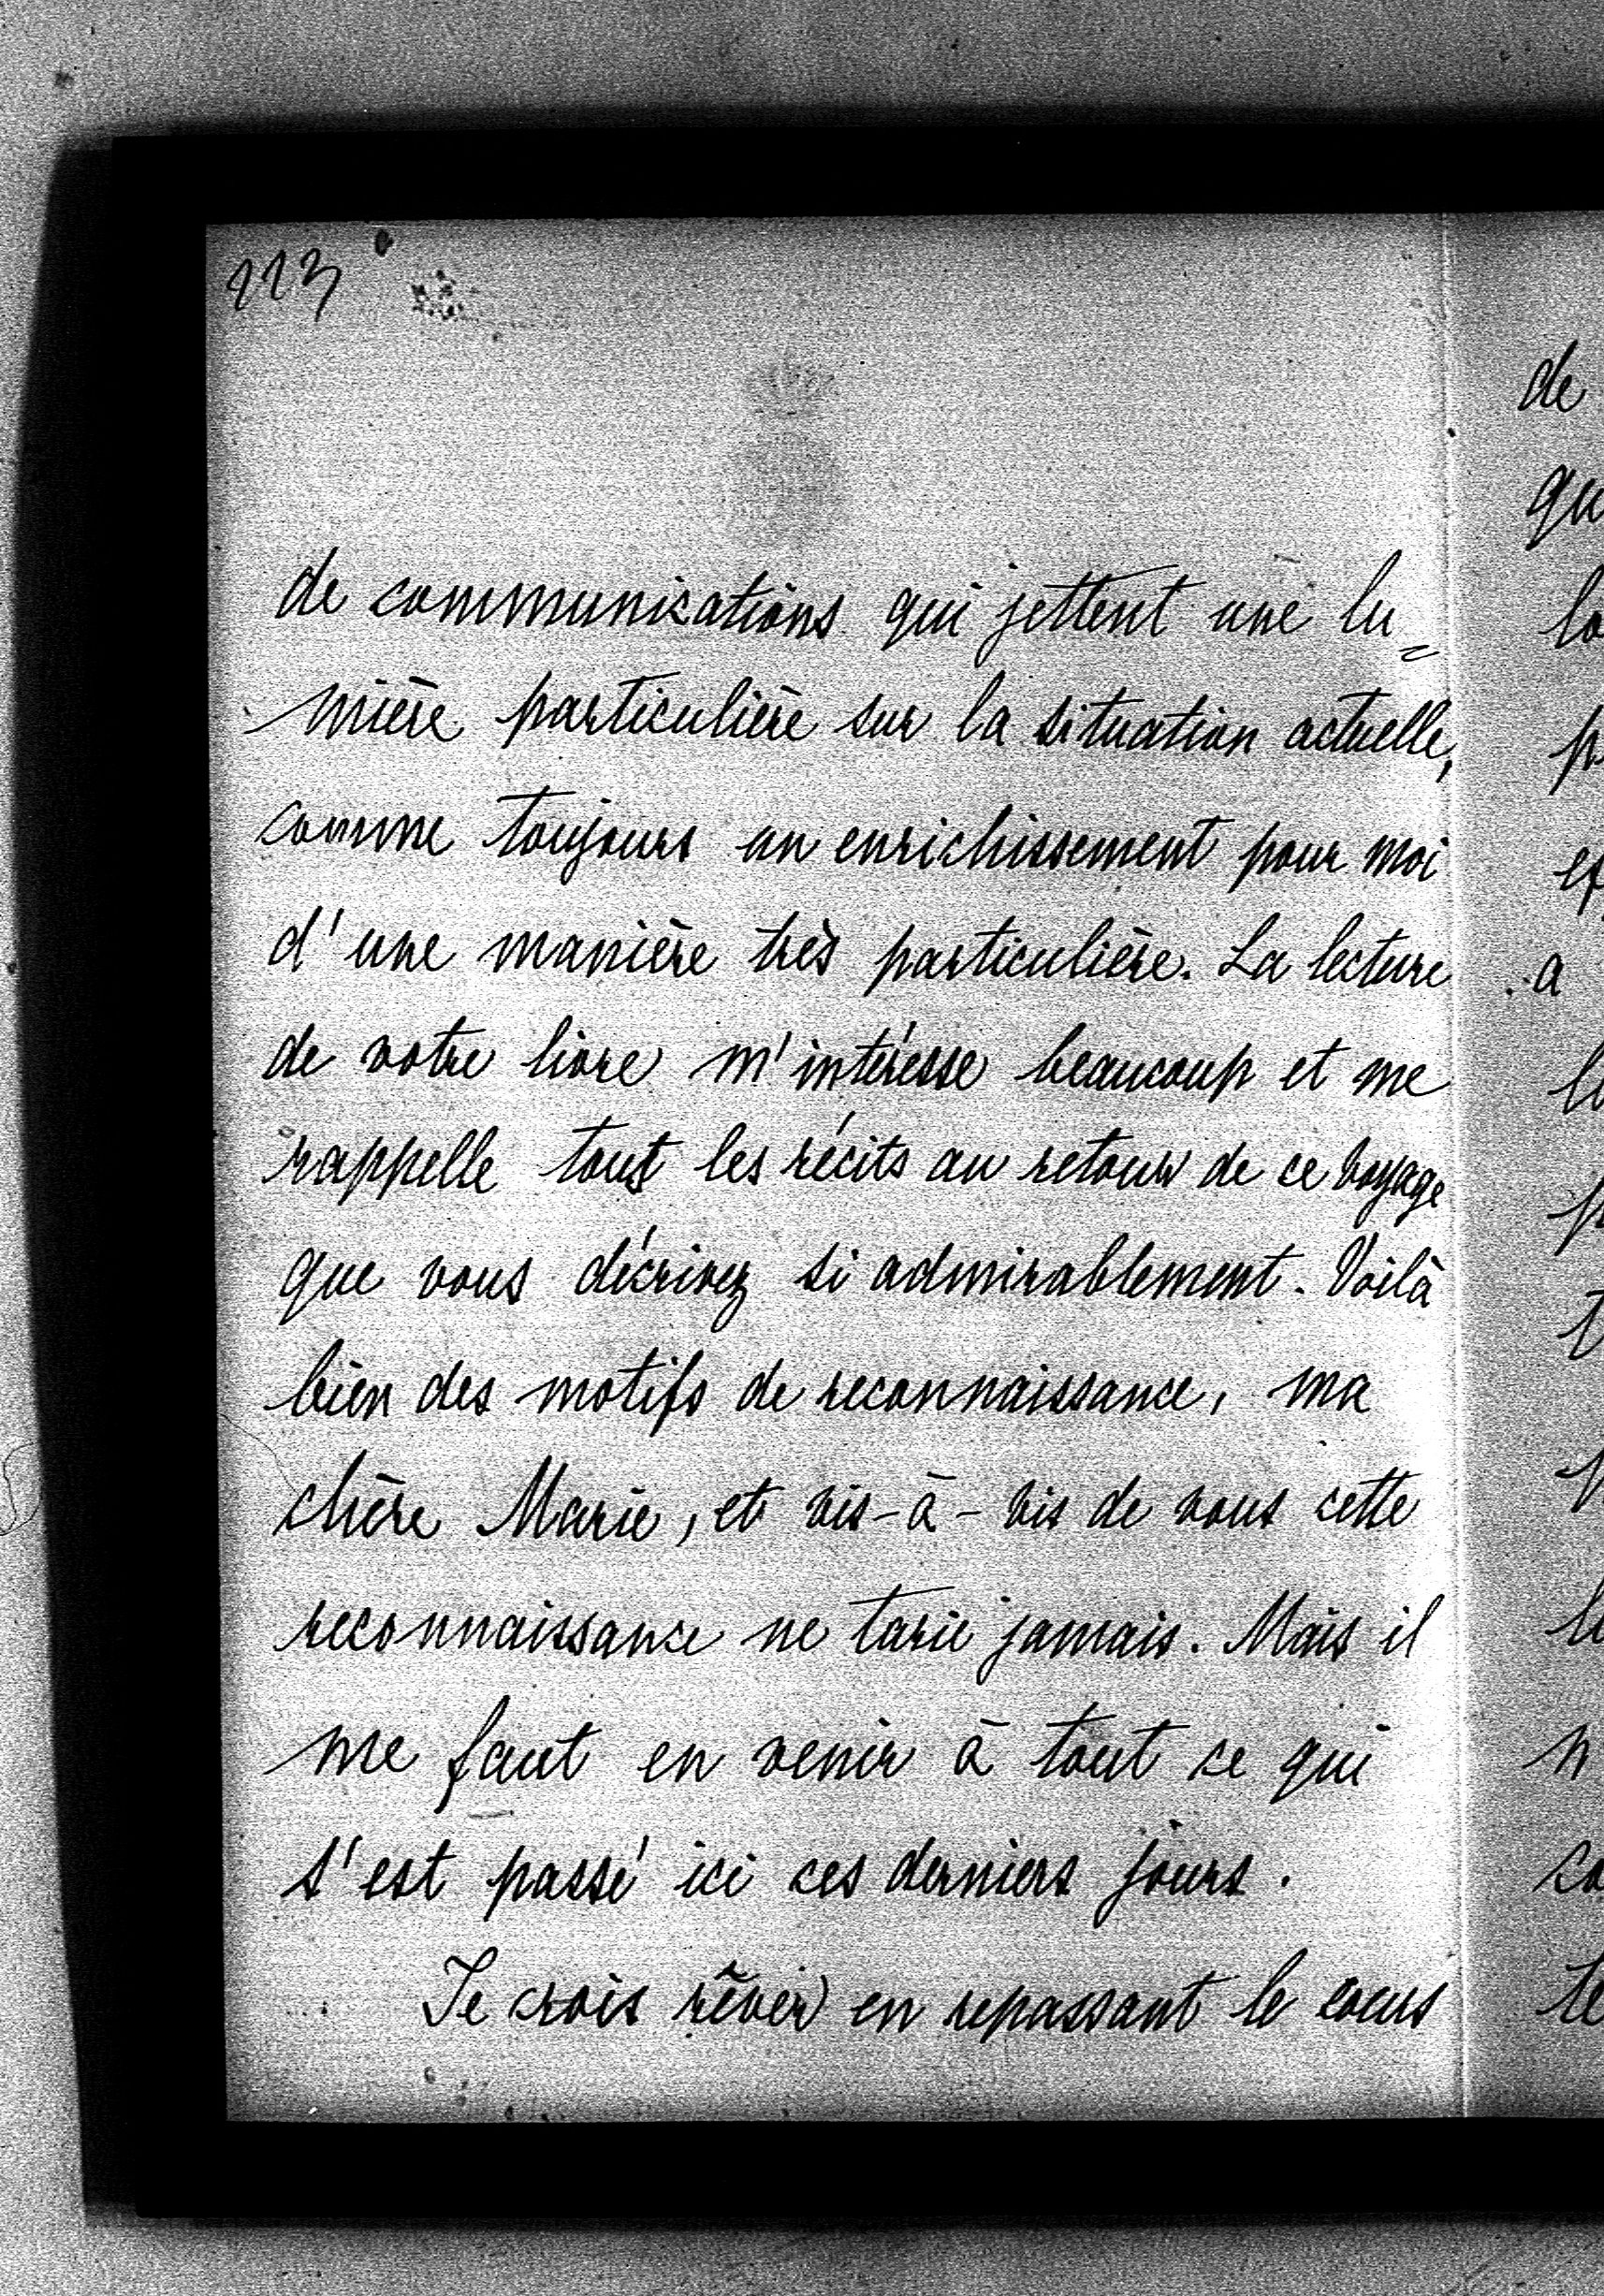 113
de communications qui jettent une lu=
mière particulière sur la situation actuelle,
comme toujours un enrichissement pour moi
d'une manière très particulière. La lecture
de votre livre m'intéresse beaucoup et me
rappelle tout les récits au retour de ce voyage
que vous décrivez si admirablement. Voilà
bien des motifs de reconnaissance, ma
chère Marie, et vis-à-vis de vous cette
reconnaissance ne tarie jamais. Mais il
me faut en venir à tout ce qui
s'est passé ici ces derniers jours.
Je crois rêver en repassant le cours
de
a